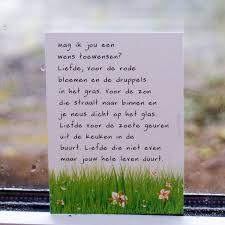 mag ik jou een
wens toewensen?
Liefde, voor de rode
bloemen en de druppels
in het gras. Voor de zon
die straalt naar binnen en
je neus dicht op het glas.
Liefde voor de zoete geuren
uit de keuken in de
buurt. Liefde die niet even
maar jouw hele leven duurt.